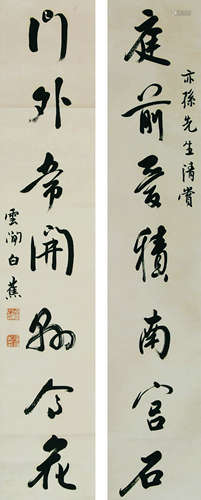 亦孫先生清賞
庭前愛積南宮石
門外常開縣令花
雲間白蕉